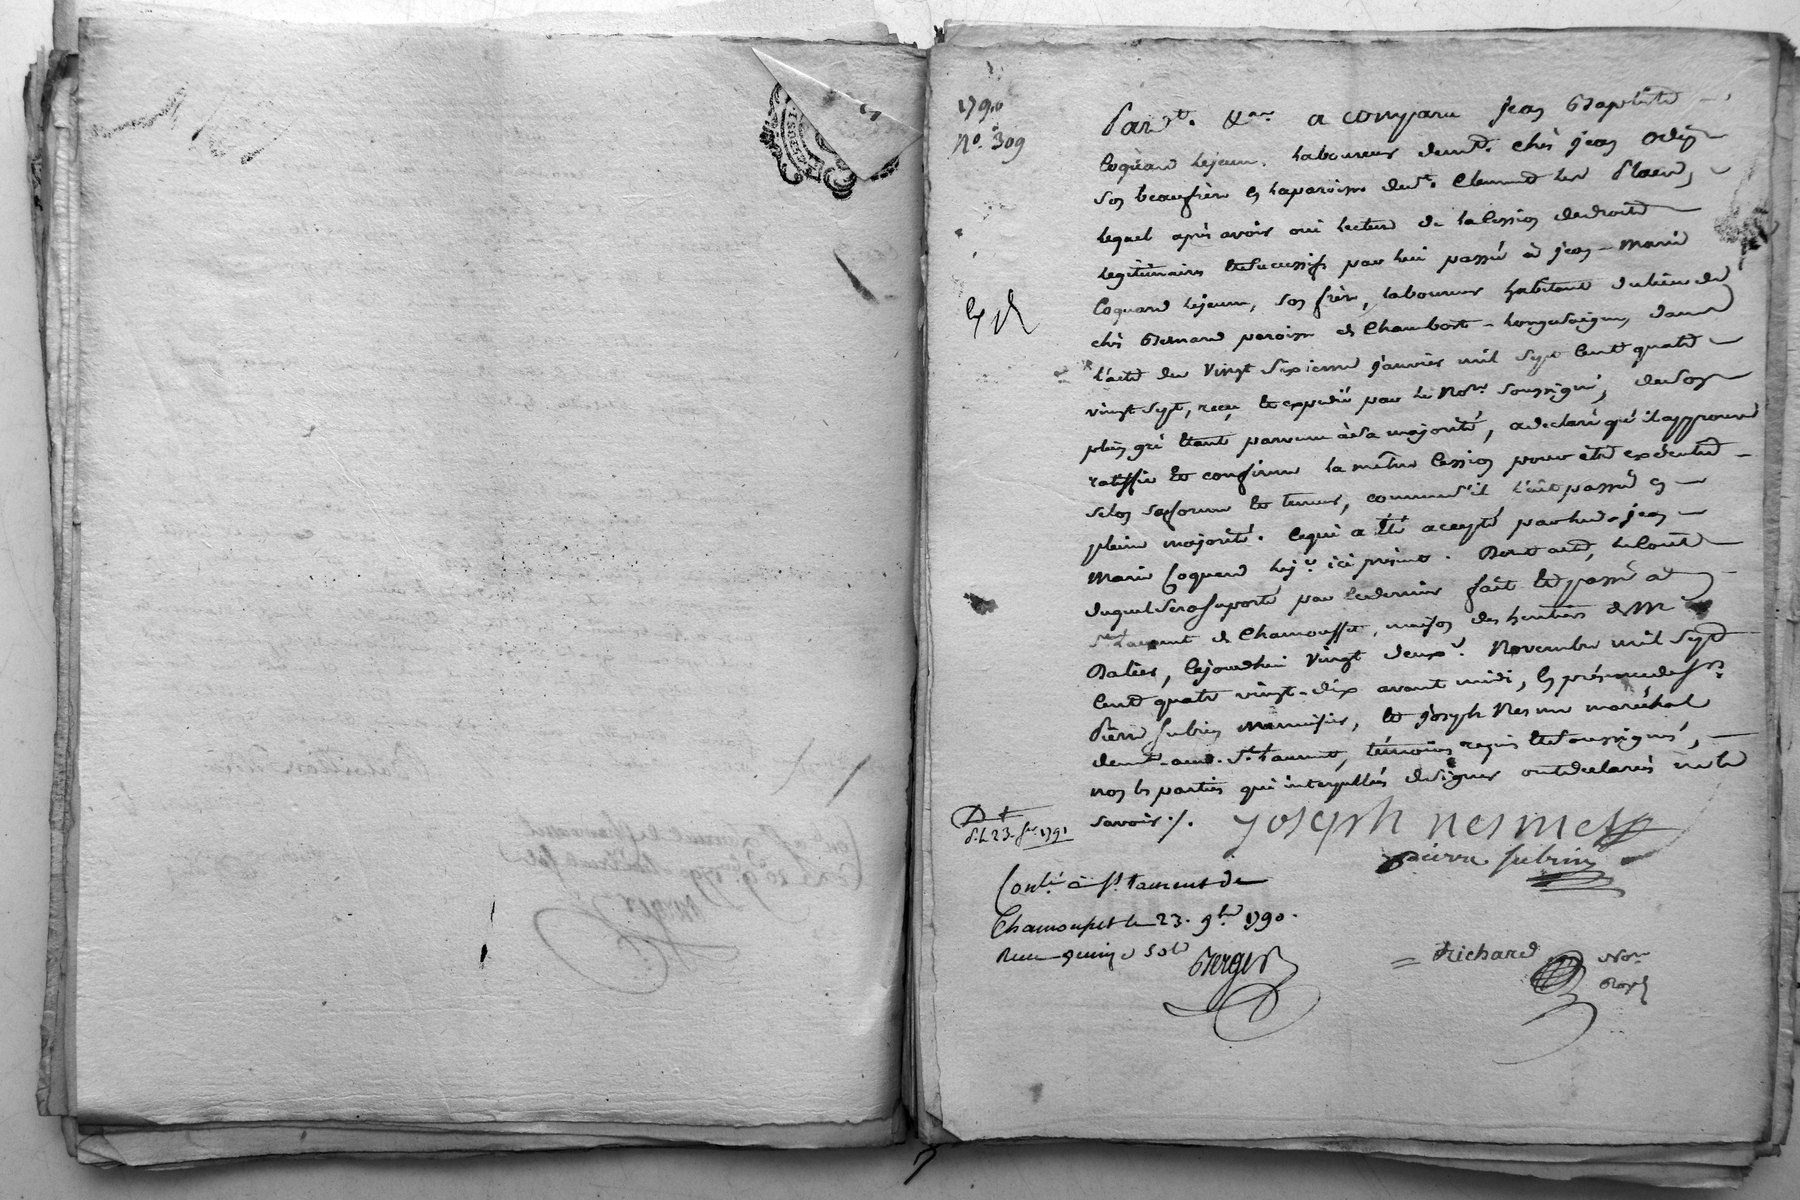 1790
No. 309
Pardt. &ane a comparu jean Baptiste
Coquard lejeune, laboureur demt. chés jean
son beaufrère en laparoisse de st. Clement les Places,
lequel après avoir oui lecture de la Cession dedroits
legitimaires et successifs par lui passée à jean-Marie
Coquard lejeune, son frère, laboureur habitant dulieu de
chés Bernard paroisse de Chambost-longessaigne, dans
l'acte du vingt sixieme janvier mil sept cent quatre
vingt sept, reçu et expedié par le Nore soussigné, deson
plein gré étant parvenu àsa majorité, adeclaré qu'il approuve
ratiffie et confirme la même Cession pour être exécutée
selon saforme et teneur, comme s'il l'eût passée en
pleine majorité. Cequi a été accepté par led. jean
Marie Coquard lej.e ici présent. Dont acte, le Coût
duquel sera suporté par ledernier fait et passé à
st. Laurent de Chamousset, maison des heritiers de Mr
Dalier, Cejourdhui vingt deuxe. Novembre mil sept
Cent quatre vingt-dix avant midi, En présence de srs.
Pierre Subrin menuisier, et joseph Nesme maréchal
demt. aud. St. Laurent, témoins requis et soussignés,
non les parties qui interpellées designer ontdeclarés nele
savoir./.
joseph nesme
pierre subrin
d. L. 23. 1791
Conlé à St. Laurent de
Chamousset le 23. 9bre 1790.
Reçu quinze sols
Berger
Richard Nore
Royl